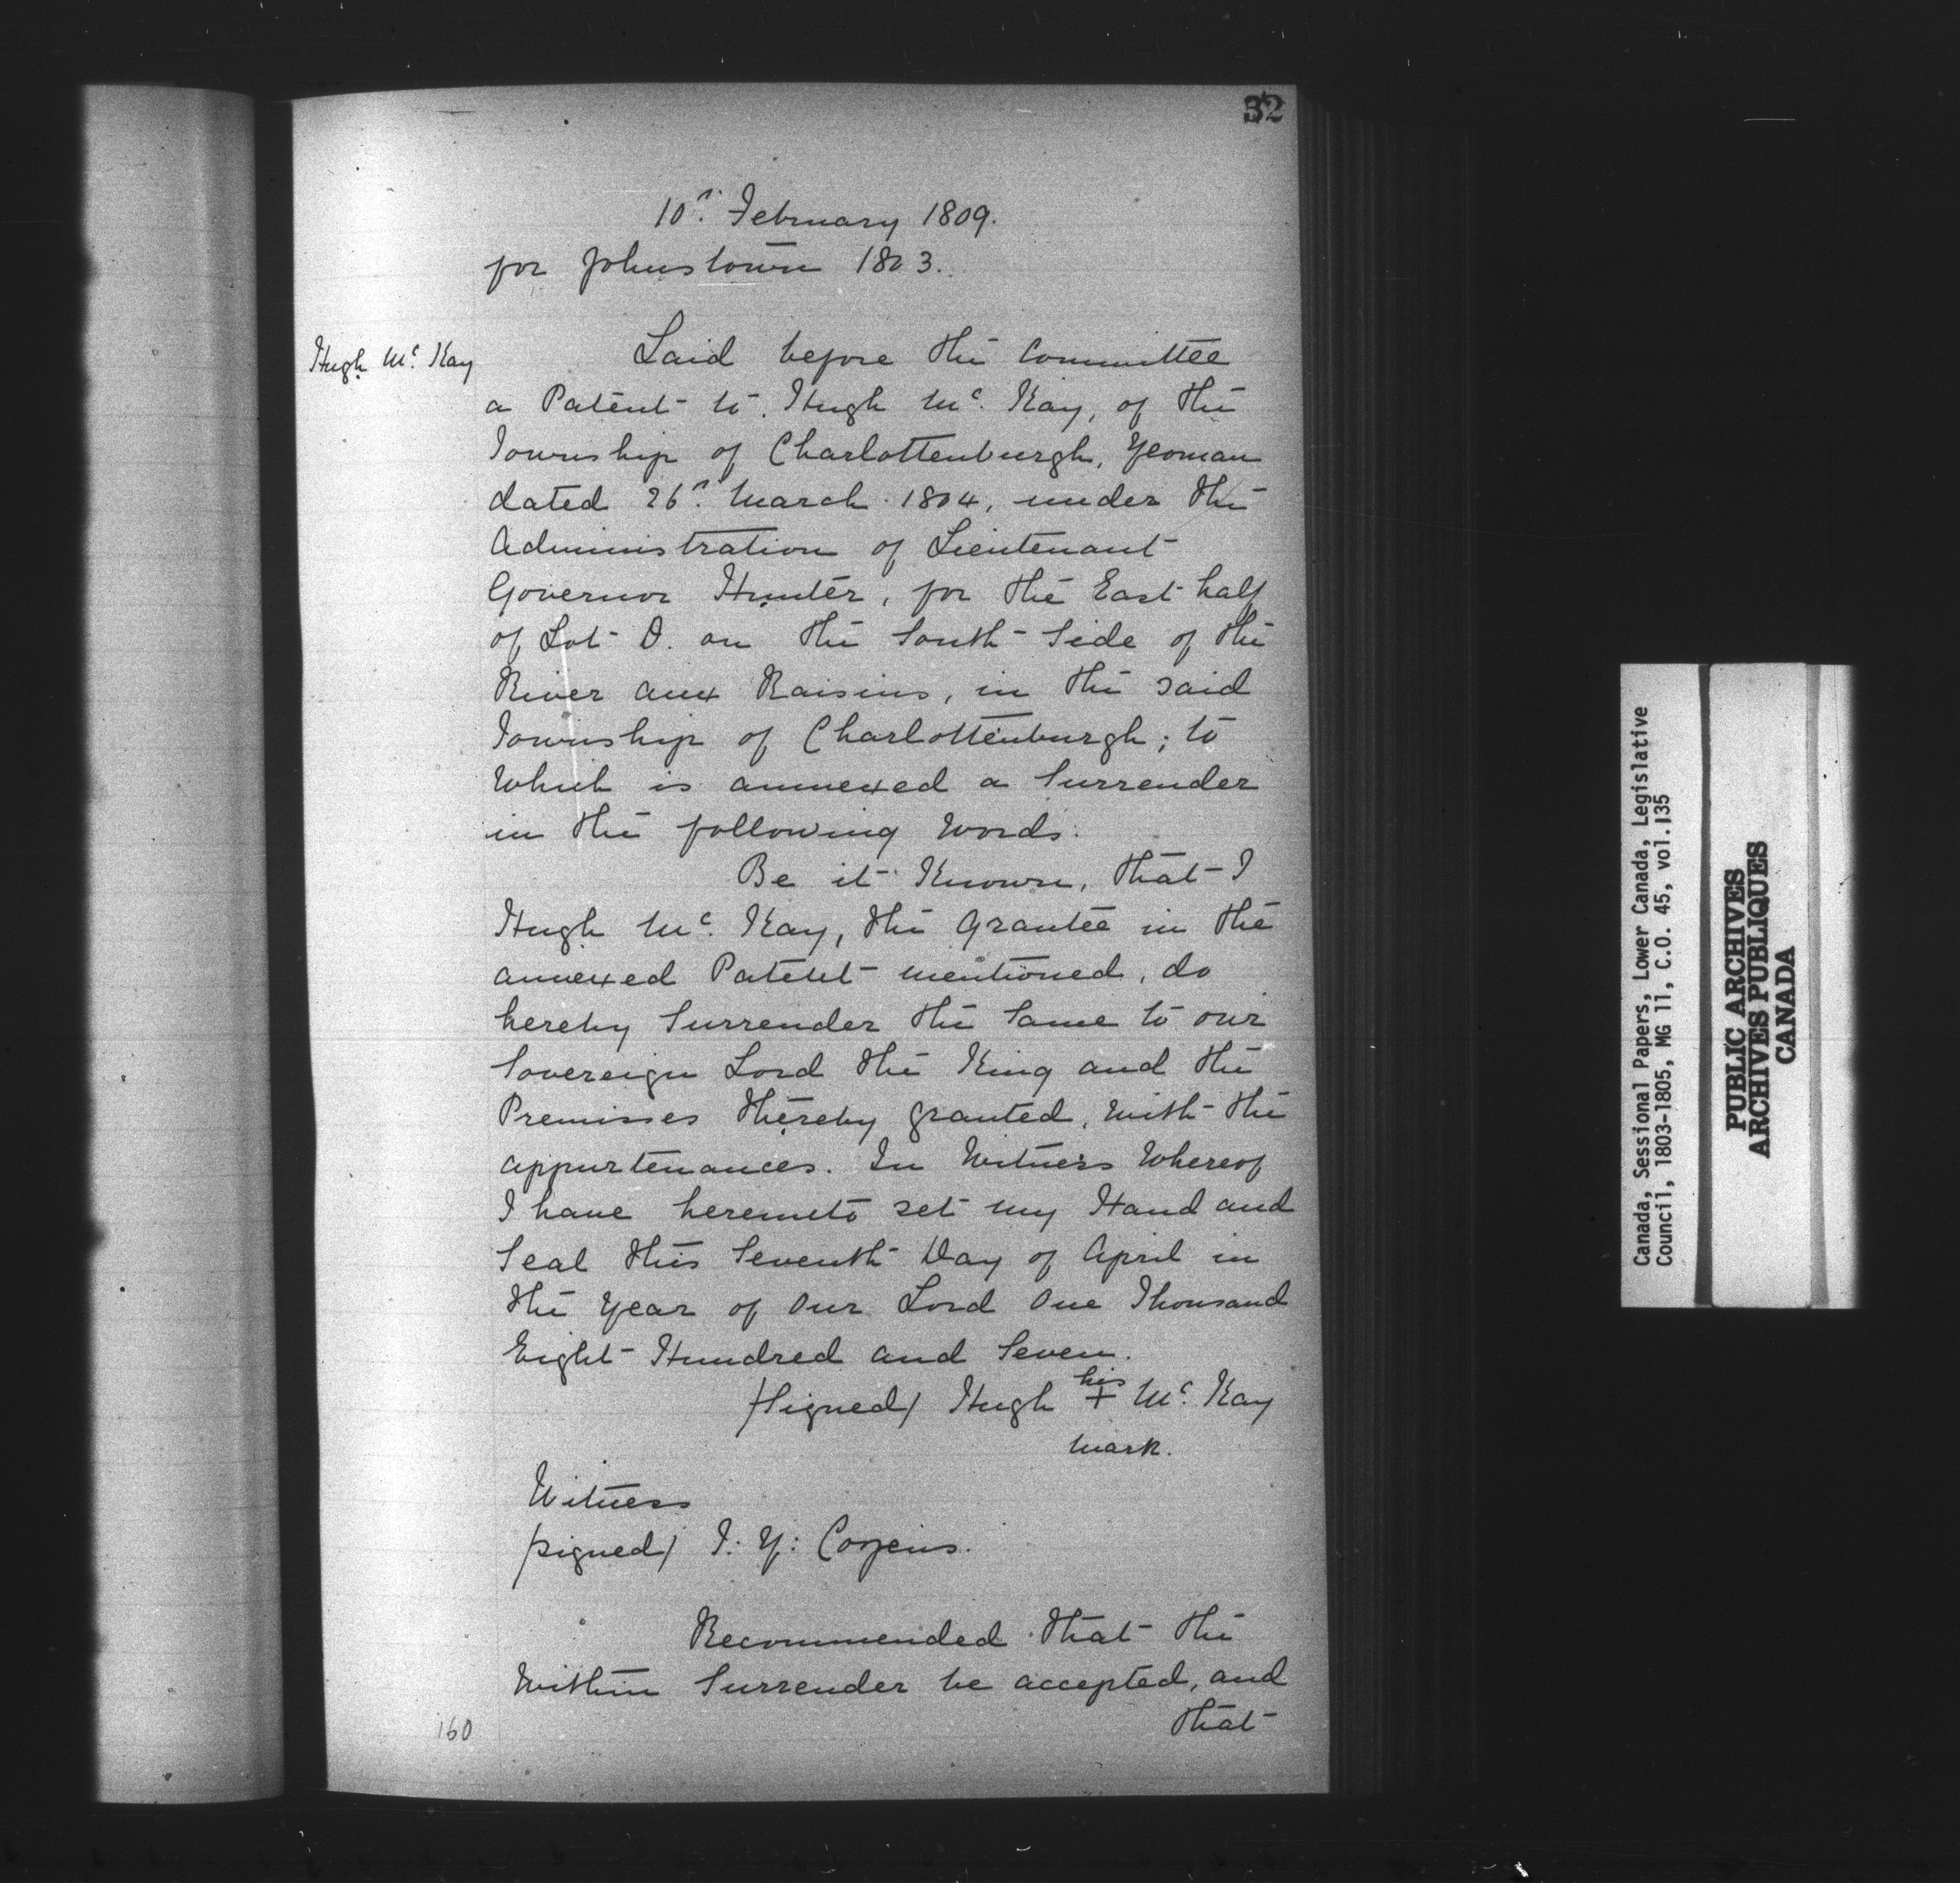 32
10th. February 1809.
for Johnstown 1803.
Hugh Mc. Kay
Laid before the Committee
a Patent to Hugh Mc. Kay, of the
Township of Charlottenburgh, Yeoman
dated 26th. March 1804, under the
Administration of Lieutenant
Governor Hunter, for the East half
of Lot D. on the South Side of the
River aux Raisins, in the said
Township of Charlottenburgh; to
Which is annexed a Surrender
in the following Words.
Be it Known, that I
Hugh Mc. Kay, the Grantee in the
annexed Patent mentioned, do
hereby Surrender the Same to our
Sovereign Lord the King and the
Premisses thereby granted, with the
appurtenances. In Witness Whereof
I have hereunto set my Hand and
Seal this Seventh Day of April in
the Year of Our Lord One Thousand
Eight Hundred and Seven.
/Signed/ Hugh his + Mc. Kay
mark.
Witness
/signed/ I: Y: Cozens.
Recommended that the
Within Surrender be accepted, and
that
160
Canada, Sessional Papers, Lower Canada, Legislative
Council, 1803-1805, MG 11, C.O. 45, vol.135
PUBLIC ARCHIVES
ARCHIVES PUBLIQUES
CANADA